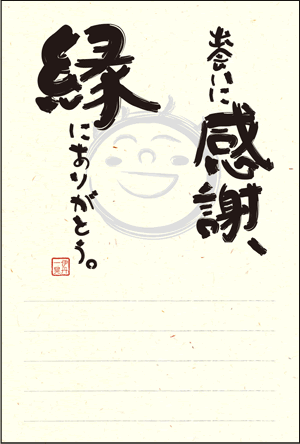 出会いに
感謝、
縁
にありがとう。